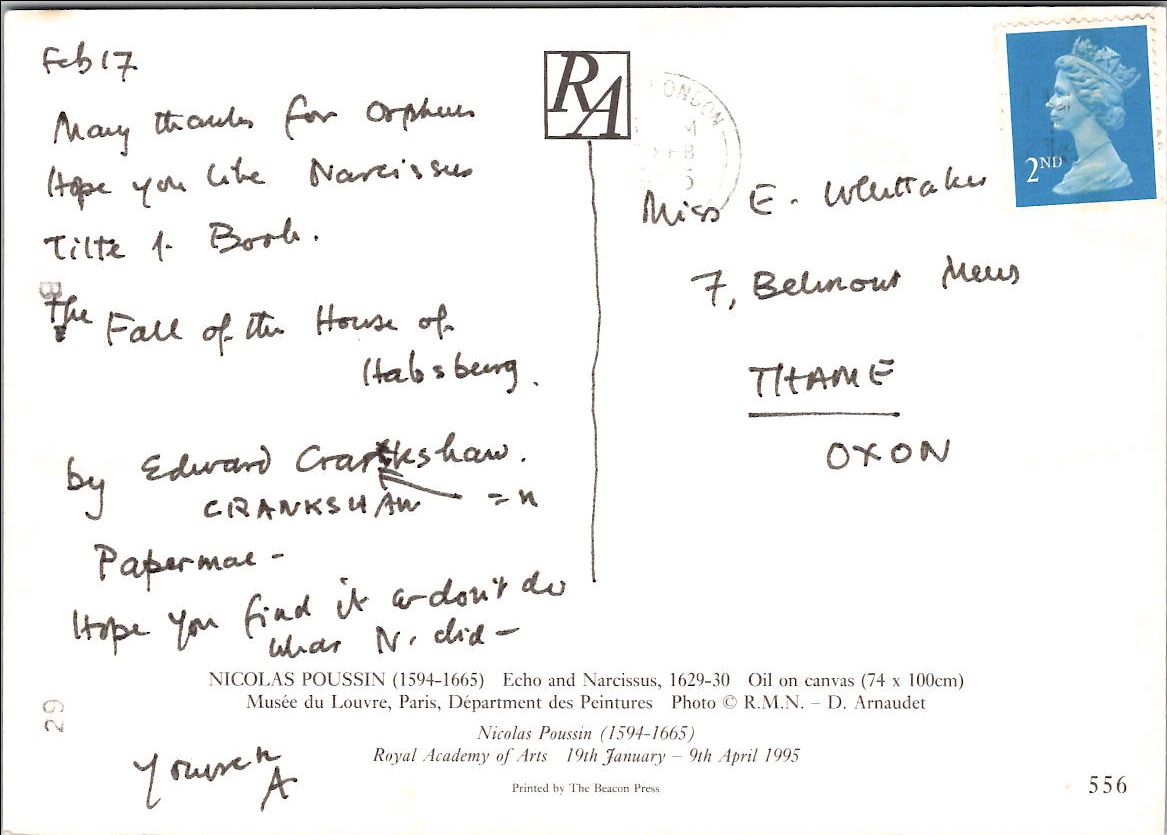 Feb 17
Many thanks for Orpheus
Hope you like Narcissus
Title of Book.
The Fall of the House of
Habsburg.
by Edward Crankshaw.
CRANKSHAW = n
Papermac -
Hope you find it & don't do
what N. did -
A
RA
LONDON
FEB
5
2ND
Miss E. Whittaker
7, Belmont Mews
THAME
OXON
NICOLAS POUSSIN (1594-1665) Echo and Narcissus, 1629-30 Oil on canvas (74 x 100cm)
Musée du Louvre, Paris, Départment des Peintures Photo © R.M.N. – D. Arnaudet
Nicolas Poussin (1594-1665)
Royal Academy of Arts 19th January – 9th April 1995
Printed by The Beacon Press
556
29